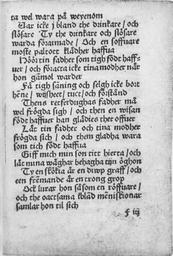 ta wel wara på weyenom
War icke ibland the drinkare / och
slösare Ty the drinkare och slösare
warda forarmade / Och en soffuare
moste paleter klädher haffua
Hör tin fadher som tigh föde haff-
uer / och foracta icke tina modher när
hon gamol warder
Få tigh saning och selgh icke bort
hēne / wijsheet / tuct / och förstånd
Thens retferdughas fadher må
wel frögda sigh / och then en wijsan
föde haffuer han gläder sigh ther offuer
Lät tin fadher och tina modher
frögda sich / och them gladha wara
som tich föde haffua
Giff mich min son titt hierta / och
lät mina wäghar behagha tijn öghon
Ty en sköka är en diwp graff / och
een fremande är en trong grop
Och lurar hon såsom en röffuare /
och the oactsama ibland menniskionar
samlar hon til sich
F iij